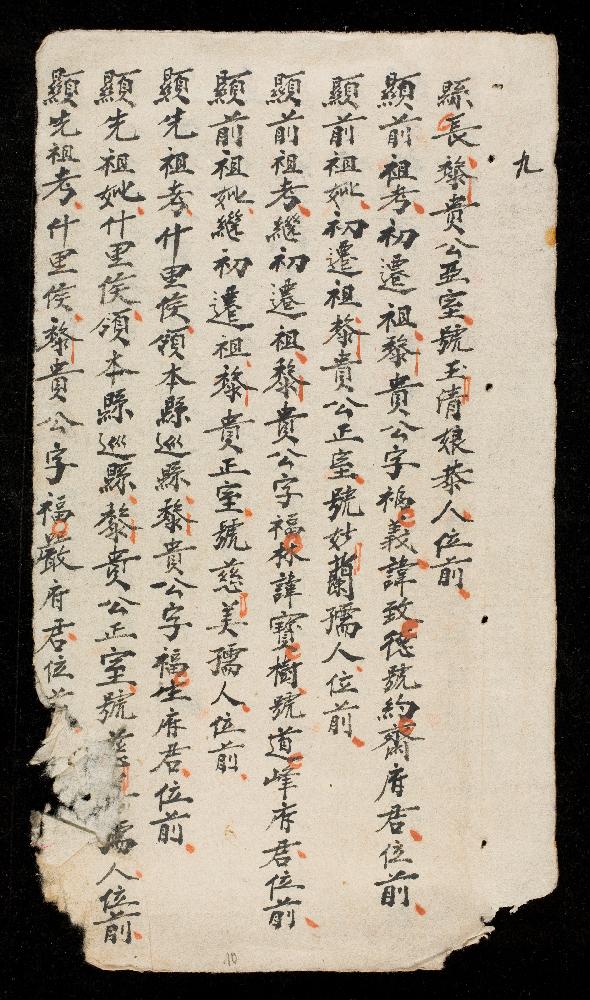 九
縣長黎貴公亞室號玉清娘恭人位前
顯前祖考初遷祖黎貴公字福義諱致德號約齋府君位前
顯前祖妣初遷祖黎貴公正室號妙蘭孺人位前
顯前祖考繼初遷祖黎貴公字福林諱寶樹號道峰府君位前
顯前祖妣繼初遷祖黎貴正室號慈美孺人位前
顯先祖考什里侯領本縣巡縣黎貴公字福生府君位前
顯先祖妣什里侯領本縣巡縣黎貴公正室號 孺人位前
顯先祖考什里侯黎貴公字福嚴府君位前
10